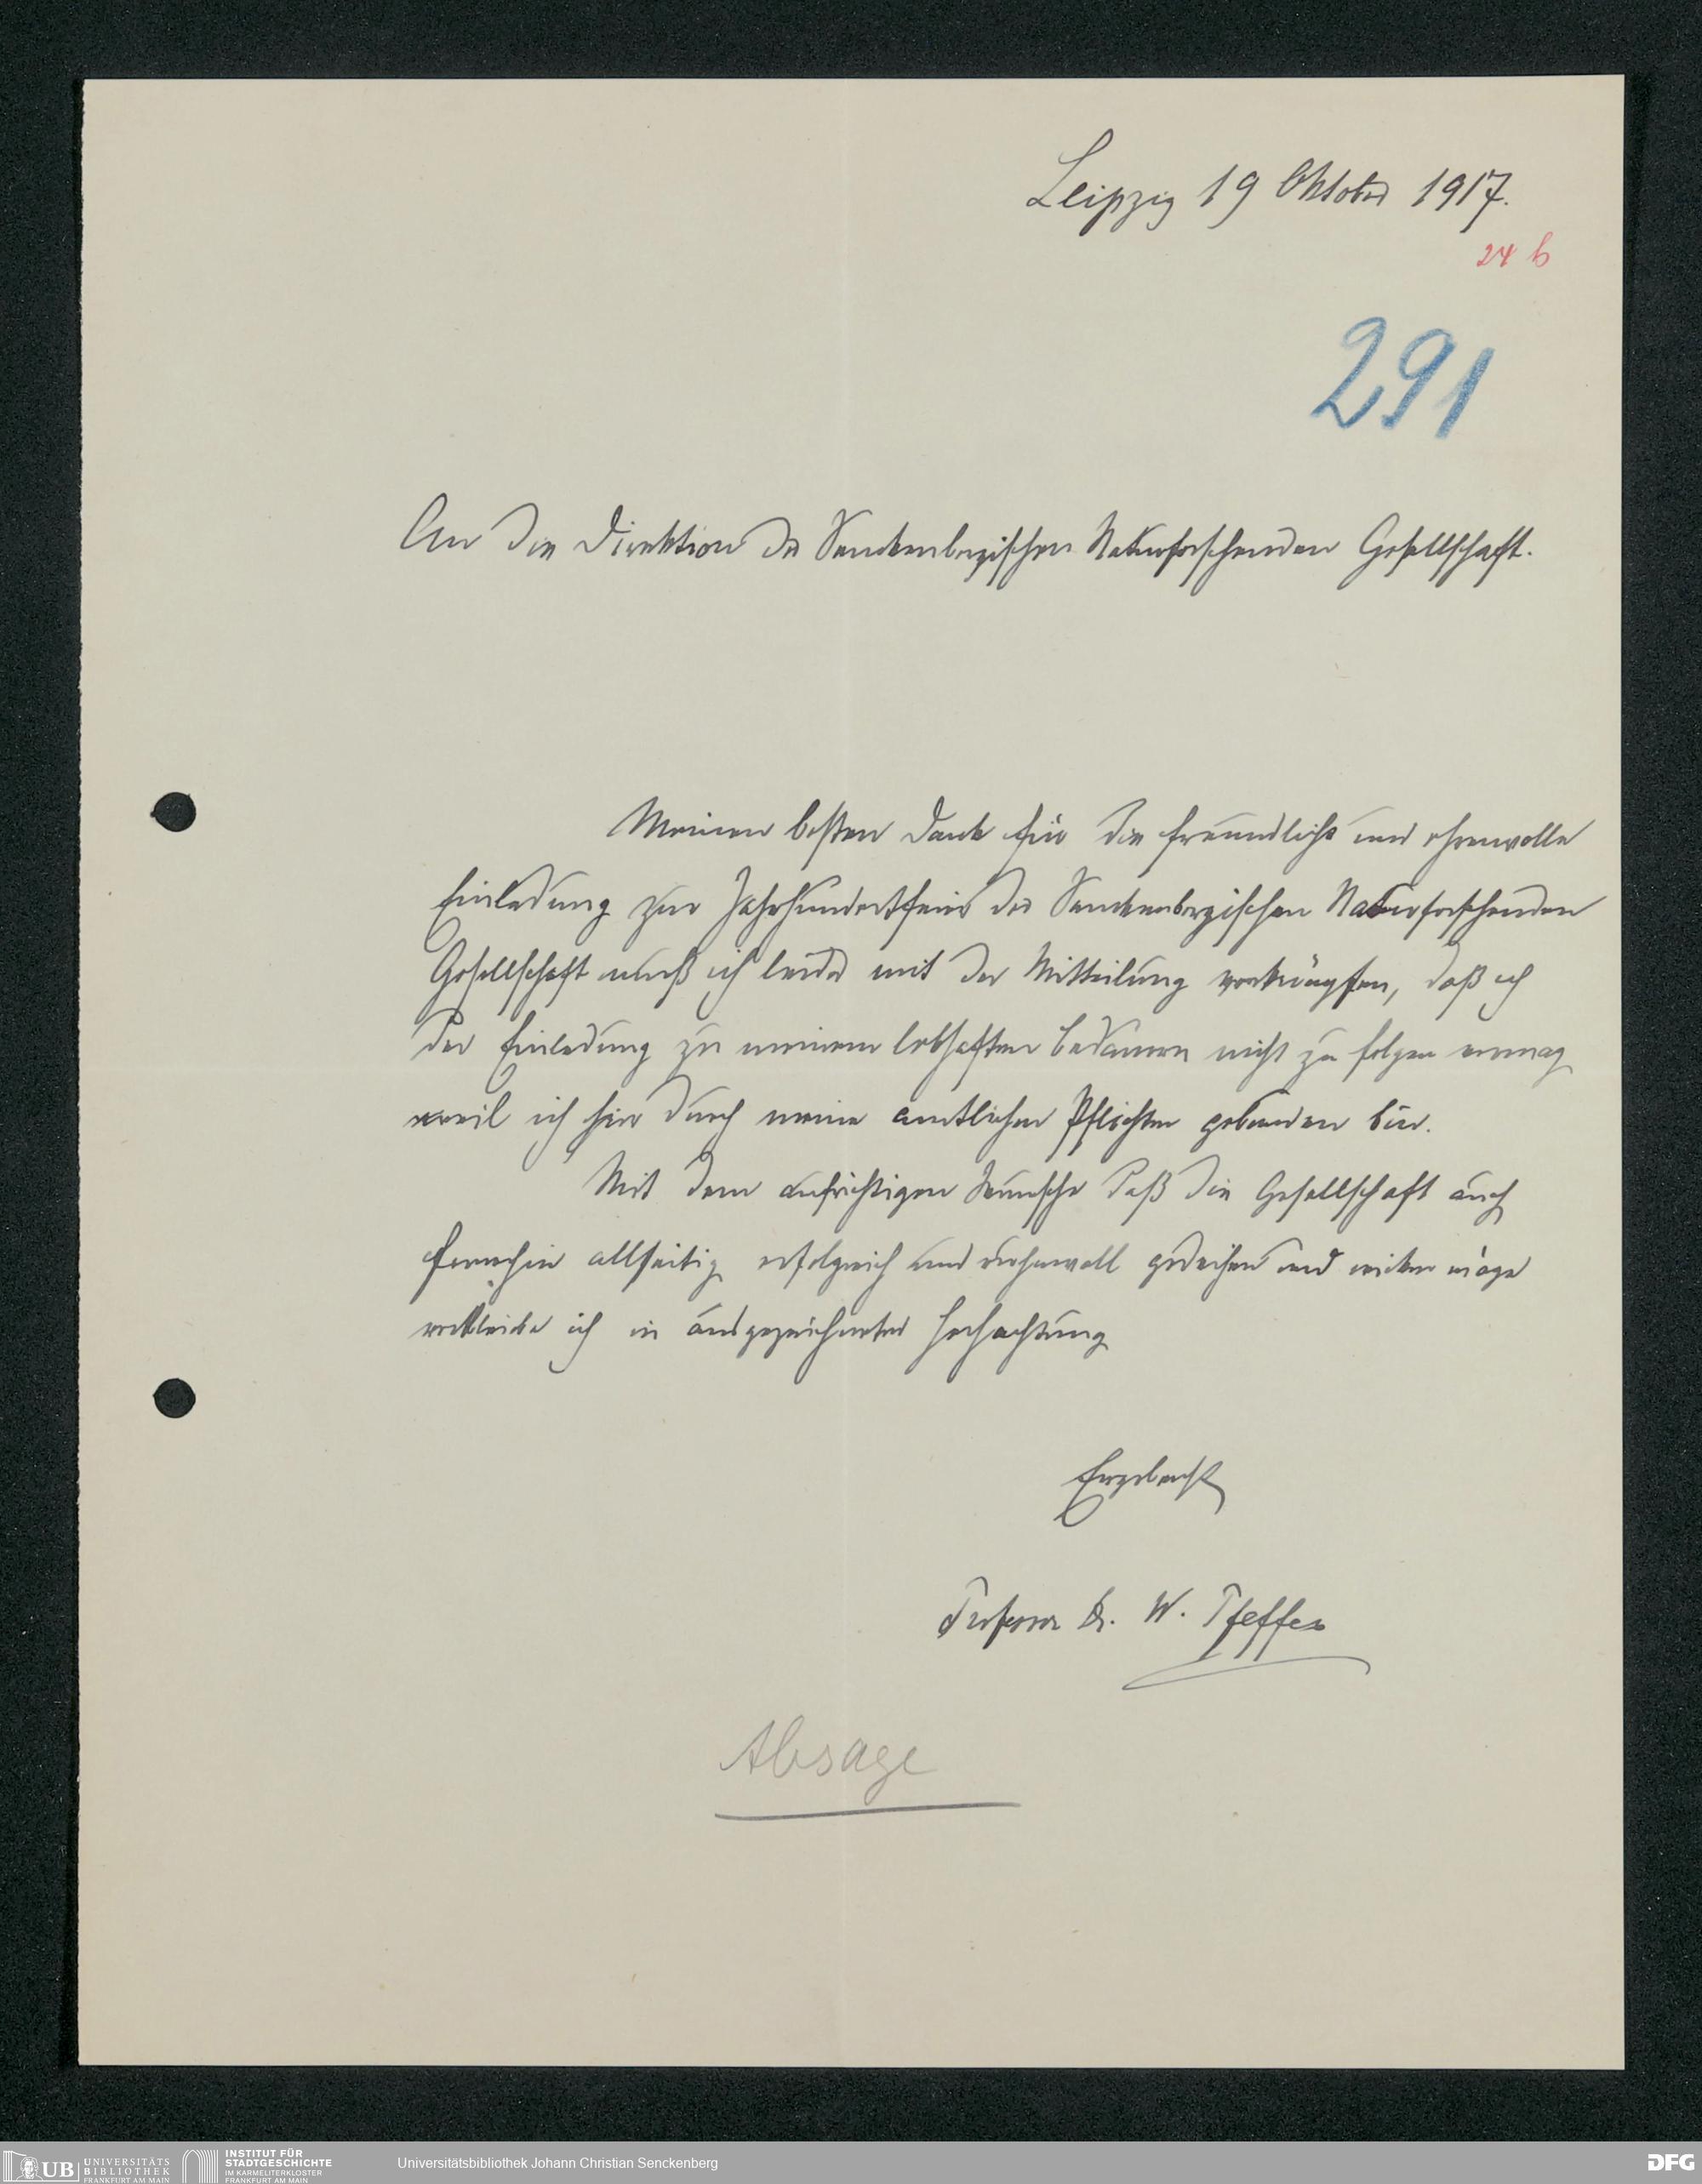 Leipzig 19 Oktober 1917.
24 b
291
An die Direktion der Senckenbergischen Naturforschenden Gesellschaft.
Meinen besten Dank für die freundliche und ehrenvolle
Einladung zur Jahrhundertfeier der Senckenbergischen Naturforschenden
Gesellschaft muß ich leider mit der Mitteilung verknüpfen, daß ich
der Einladung zu meinem lebhaften Bedauern nicht zu folgen vermag
weil ich hier durch meine amtlichen Pflichten gebunden bin.
Mit dem aufrichtigen Wunsche daß die Gesellschaft auch
fernerhin allseitig erfolgreich und ruhmvoll gedeihen und wirken möge
verbleibe ich in ausgezeichneter Hochachtung
Ergebenst
Professor Dr. W. Pfeffer
Absage
UB UNIVERSITÄTS BIBLIOTHEK FRANKFURT AM MAIN
INSTITUT FÜR STADTGESCHICHTE IM KARMELITERKLOSTER FRANKFURT AM MAIN
Universitätsbibliothek Johann Christian Senckenberg
DFG